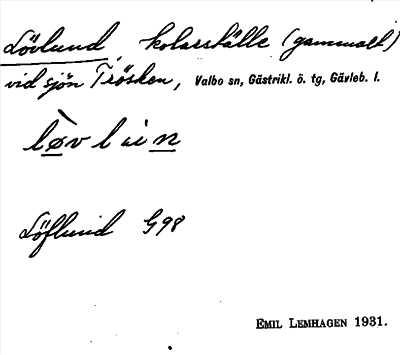 Lövlund, kolarställe (gammalt)
vid sjön Trösken, Valbo sn, Gästrikl. ö. tg, Gävleb. l.
lø̀vlun
Löflund G98
EMIL LEMHAGEN 1931.